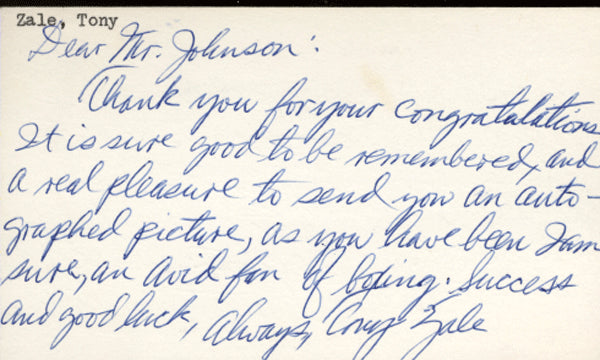 Zale, Tony
Dear Mr. Johnson:
Thank you for your congratulations
It is sure good to be remembered, and
a real pleasure to send you an auto-
graphed picture, as you have been I am
sure, an avid fan of boxing. Success
and good luck, always, Tony Zale